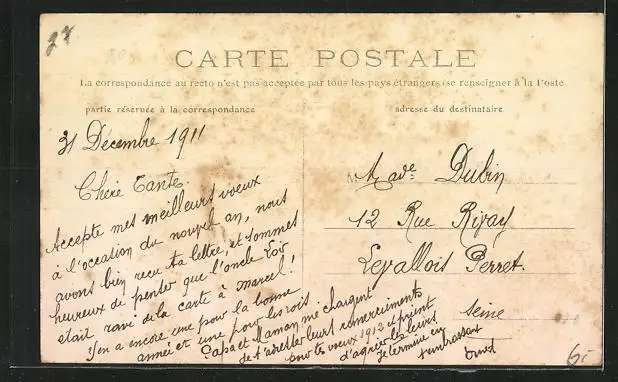 27
CARTE POSTALE
La correspondance au recto n'est pas acceptée par tous les pays étrangers (se renseigner à la Poste
partie réservée à la correspondance
adresse du destinataire
31 Décembre 1911
Chère Tante.
Accepte mes meilleurs voeux
à l'occation du nouvel an, nous
avons bien reçu ta lettre, et sommes
heureux de penser que l'oncle
était ravi de la carte à Marcel!
J'en a encore une pour la bonne
année et une pour les rois
Papa et Maman me chargent
de t'adresser leurs remerciments
pour tes voeux 1912 et prient
d'agréer les leurs
Je termine en
t'embrassant
Made Dubin
12 Rue Rivay
Levallois Perret.
Seine